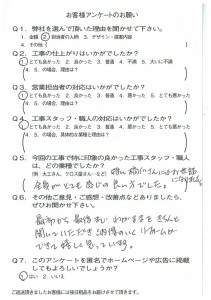 お客様アンケートのお願い
Q１．弊社を選んで頂いた理由を聞かせて下さい。
１．金額 ２．担当者の人柄 ３．デザイン・提案内容
４．その他（　　　）
Q２．工事の仕上がりはいかがでしたか？
１．とても良かった ２．良かった ３．普通 ４．不満 ５．大いに不満
（４．５．の場合、理由は？
Q３．営業担当者の対応はいかがでしたか？
１．とても良かった ２．良かった ３．普通 ４．悪かった ５．とても悪かった
（４．５．の場合、理由は？
Q４．工事スタッフ・職人の対応はいかがでしたか？
１．とても良かった ２．良かった ３．普通 ４．悪い ５．とても悪い
（４．５．の場合、具体的な業種と理由は？
Q５．今回の工事で特に印象の良かった工事スタッフ・職人
は、どの業種でしたか？
（例：大工さん、クロス屋さんなど）
全員がとても感じの良い方でした。
Q６．その他ご意見・ご感想・改善点などありましたら、
ぜひお聞かせ下さい。
最初から最後まで、わがままをきちんと
聞いていただき、納得のいくリフォームが
できて嬉しく思っています。
Q７．このアンケートを匿名でホームページや広告に掲載
してもよろしいでしょうか？
１．はい ２．いいえ
ご返送頂きましたお客様には後日粗品をお届けさせて頂きます。